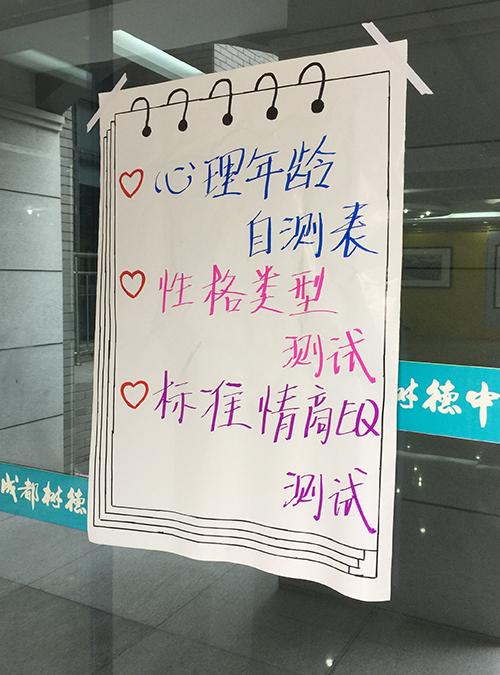 心理年龄
自测表
性格类型
测试
标准情商EQ
测试
成都树德
树德中